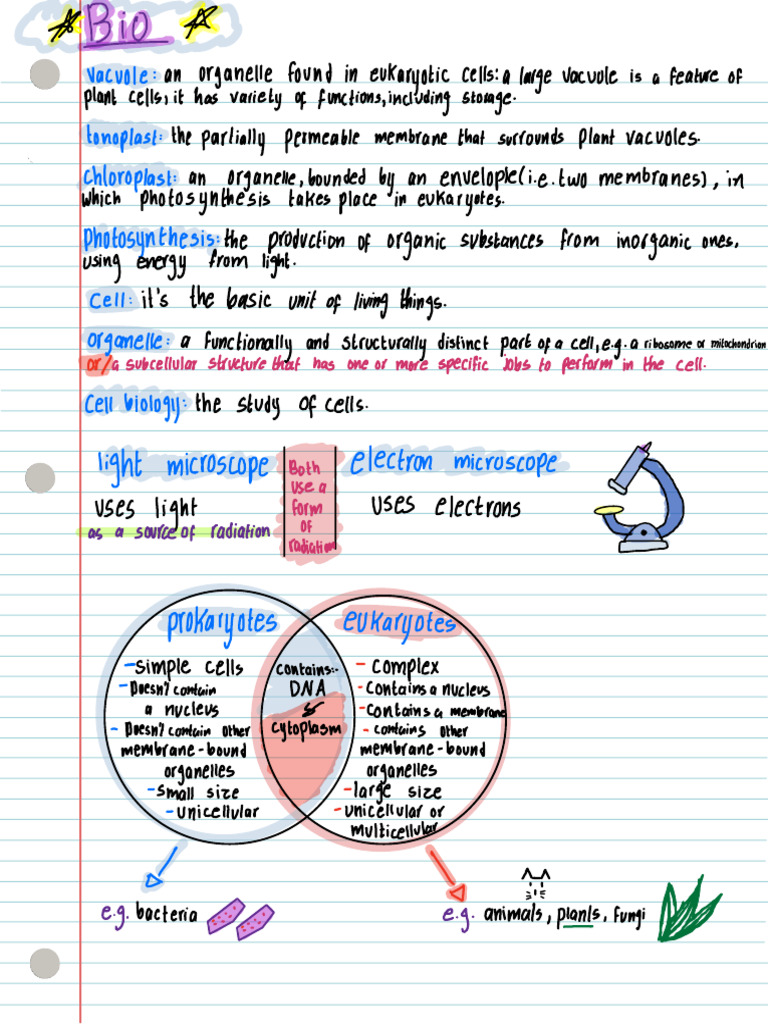 Bio
Vacuole: an organelle found in eukaryotic cells: a large vacuole is a feature of
plant cells, it has variety of functions, including storage.
tonoplast: the partially permeable membrane that surrounds plant vacuoles.
Chloroplast: an organelle, bounded by an envelople (i.e. two membranes), in
which photosynthesis takes place in eukaryotes.
Photosynthesis: the production of organic substances from inorganic ones,
using energy from light.
Cell: it's the basic unit of living things.
organelle: a functionally and structurally distinct part of a cell, e.g. a ribosome or mitochondrion
or/a subcellular structure that has one or more specific Jobs to perform in the cell.
Cell biology: the study of cells.
light microscope
uses light
as a source of radiation
Both
use a
form
of
radiation
electron microscope
uses electrons
prokaryotes
- simple cells
- Doesn't contain
a nucleus
- Doesn't contain other
membrane-bound
organelles
- small size
- unicellular
contains:-
DNA
&
cytoplasm
eukaryotes
- complex
- Contains a nucleus
- contains a membrane
- contains other
membrane-bound
organelles
- large size
- unicellular or
multicellular
e.g. bacteria
e.g. animals, plants, fungi